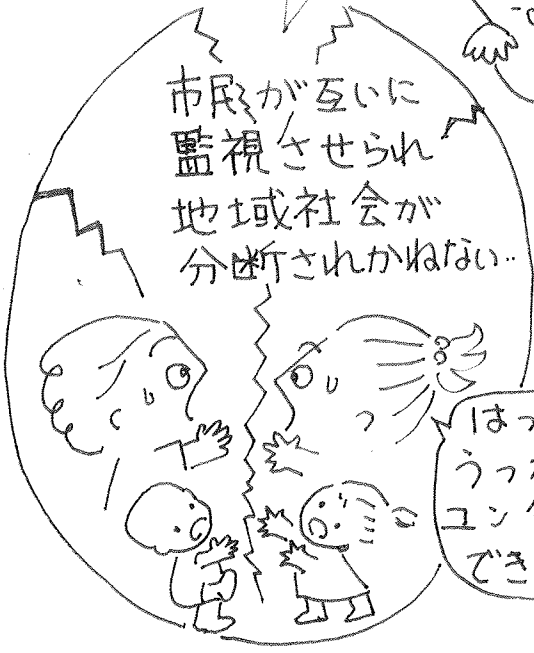 市民が互いに
監視させられ
地域社会が
分断されかねない‥
はっ
うっ
ユン
でき